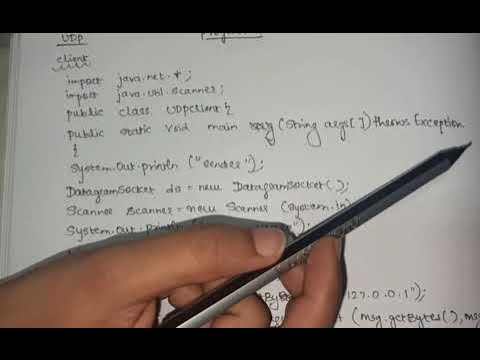 UDP
client
import java.net.*;
import java.util.scanner;
public class UDPclient{
public static void main (String args[]) throws Exception
{
System.out.println ("sender");
DatagramSocket ds = new DatagramSocket();
Scanner scanner = new Scanner (System.in)
System.out.println ");
getBytes "127.0.0.1");
(msg.getBytes(), msg